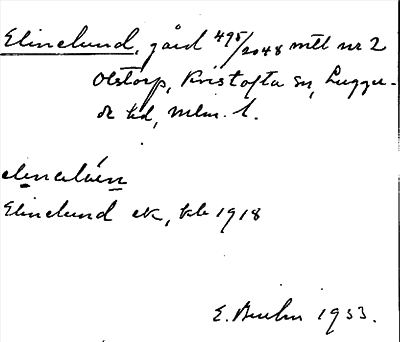 Elinelund, gård 495/2048 mtl nr 2
Olstorp, Kristofta sn, Luggu-
de hd, Mlm. l.
Elinelund ek, kb 1918
E. Bruhn 1933.